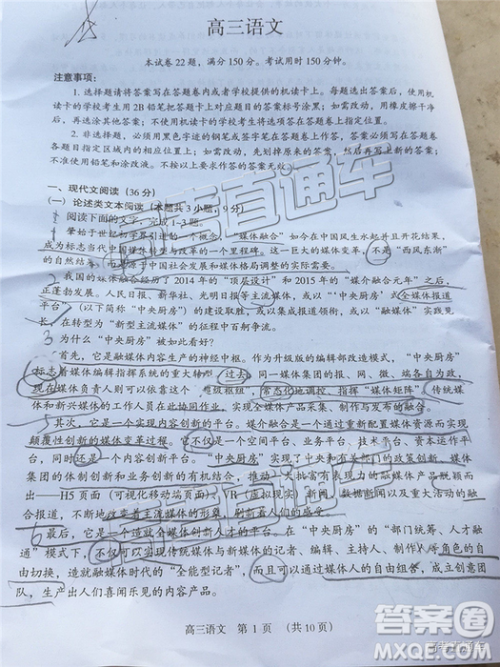 高三语文
本试卷22题，满分150分。考试用时150分钟。
注意事项：
1. 选择题请将答案写在答题卷内或者学校提供的机读卡上。每题选出答案后，使用机
读卡的学校考生用2B铅笔把答题卡上对应题目的答案标号涂黑；如需改动，用橡皮擦干净
后，再选涂其他答案标号，不用机读卡的学校考生直接写在答题卷上指定位置。
2. 非选择题，必须用黑色字迹的钢笔或签字笔在答题卷上作答，答案必须写在答题卷
各题目指定区域内的相应位置上；如需改动，先划掉原来的答案，然后再写上新的答案；
不准使用铅笔和涂改液。不按以上要求作答的答案无效。
一、现代文阅读（36分）
（一）论述类文本阅读（本题共3小题，9分）
阅读下面的文字，完成1-3题。
肇始于世纪初学界引进的一个概念，“媒体融合”如今在中国风生水起并且开花结果，
成为标志当代中国媒体转型与变革的一个里程碑。这一巨大的媒体变革，不是“西风东渐”
的自然结果，而是源于中国社会发展和媒体格局调整的实际需要。
我国的媒体融合经历了2014年的“顶层设计”和2015年的“媒介融合元年”之后，正
蓬勃发展。人民日报、新华社、光明日报等主流媒体，或以“中央厨房”式（全媒体报道
平台）（以下简称“中央厨房”）的建设取胜，或以集成报道领衔，或以“融媒体”实践见
长，在转型为“新型主流媒体”的征程中百舸争流。
为什么“中央厨房”被如此看好？
首先，它是融媒体内容生产的神经中枢。作为升级版的编辑部改造模式，“中央厨房”
标志着媒体编辑指挥系统的重大转型。过去，同一媒体集团的报、网、微、端各自为政，
现在媒体负责人则可以依靠这个“超级枢纽”，常态化地调控、指挥“媒体矩阵”，传统媒
体和新兴媒体的工作人员在此协同作业，实现全媒体产品采集、制作与发布的融合。
其次，它是一个实现内容创新的平台。媒介融合是一个通过重新配置媒体资源而实现
颠覆性创新的媒体变革过程。它不仅是一个空间平台、业务平台、技术平台、资本运营平
台，同时还是一个内容创新平台。“中央厨房”实现了中央和有关部门的政策创新、媒体
集团的体制创新和业务创新的有机结合，推动一大批富有表现力的融媒体产品脱颖而
出——H5页面（可视化移动页面）、VR（虚拟现实）新闻、数据新闻以及重大活动的融
合报道，不断地改变着主流媒体的刻板印象，刷新着人们的感受。
最后，它是一个造就全媒体创新人才的平台。在“中央厨房”的“部门统筹、人才融
通”模式下，不仅可以实现传统媒体与新媒体的记者、编辑、主持人、制作人等角色的自
由切换，造就融媒体时代的“全能型记者”，而且可以进行人员的自由组合，成立创意团
队，生产出人们喜闻乐见的内容产品。
高三语文 第1页 （共10页）
高考直通车
答案卷